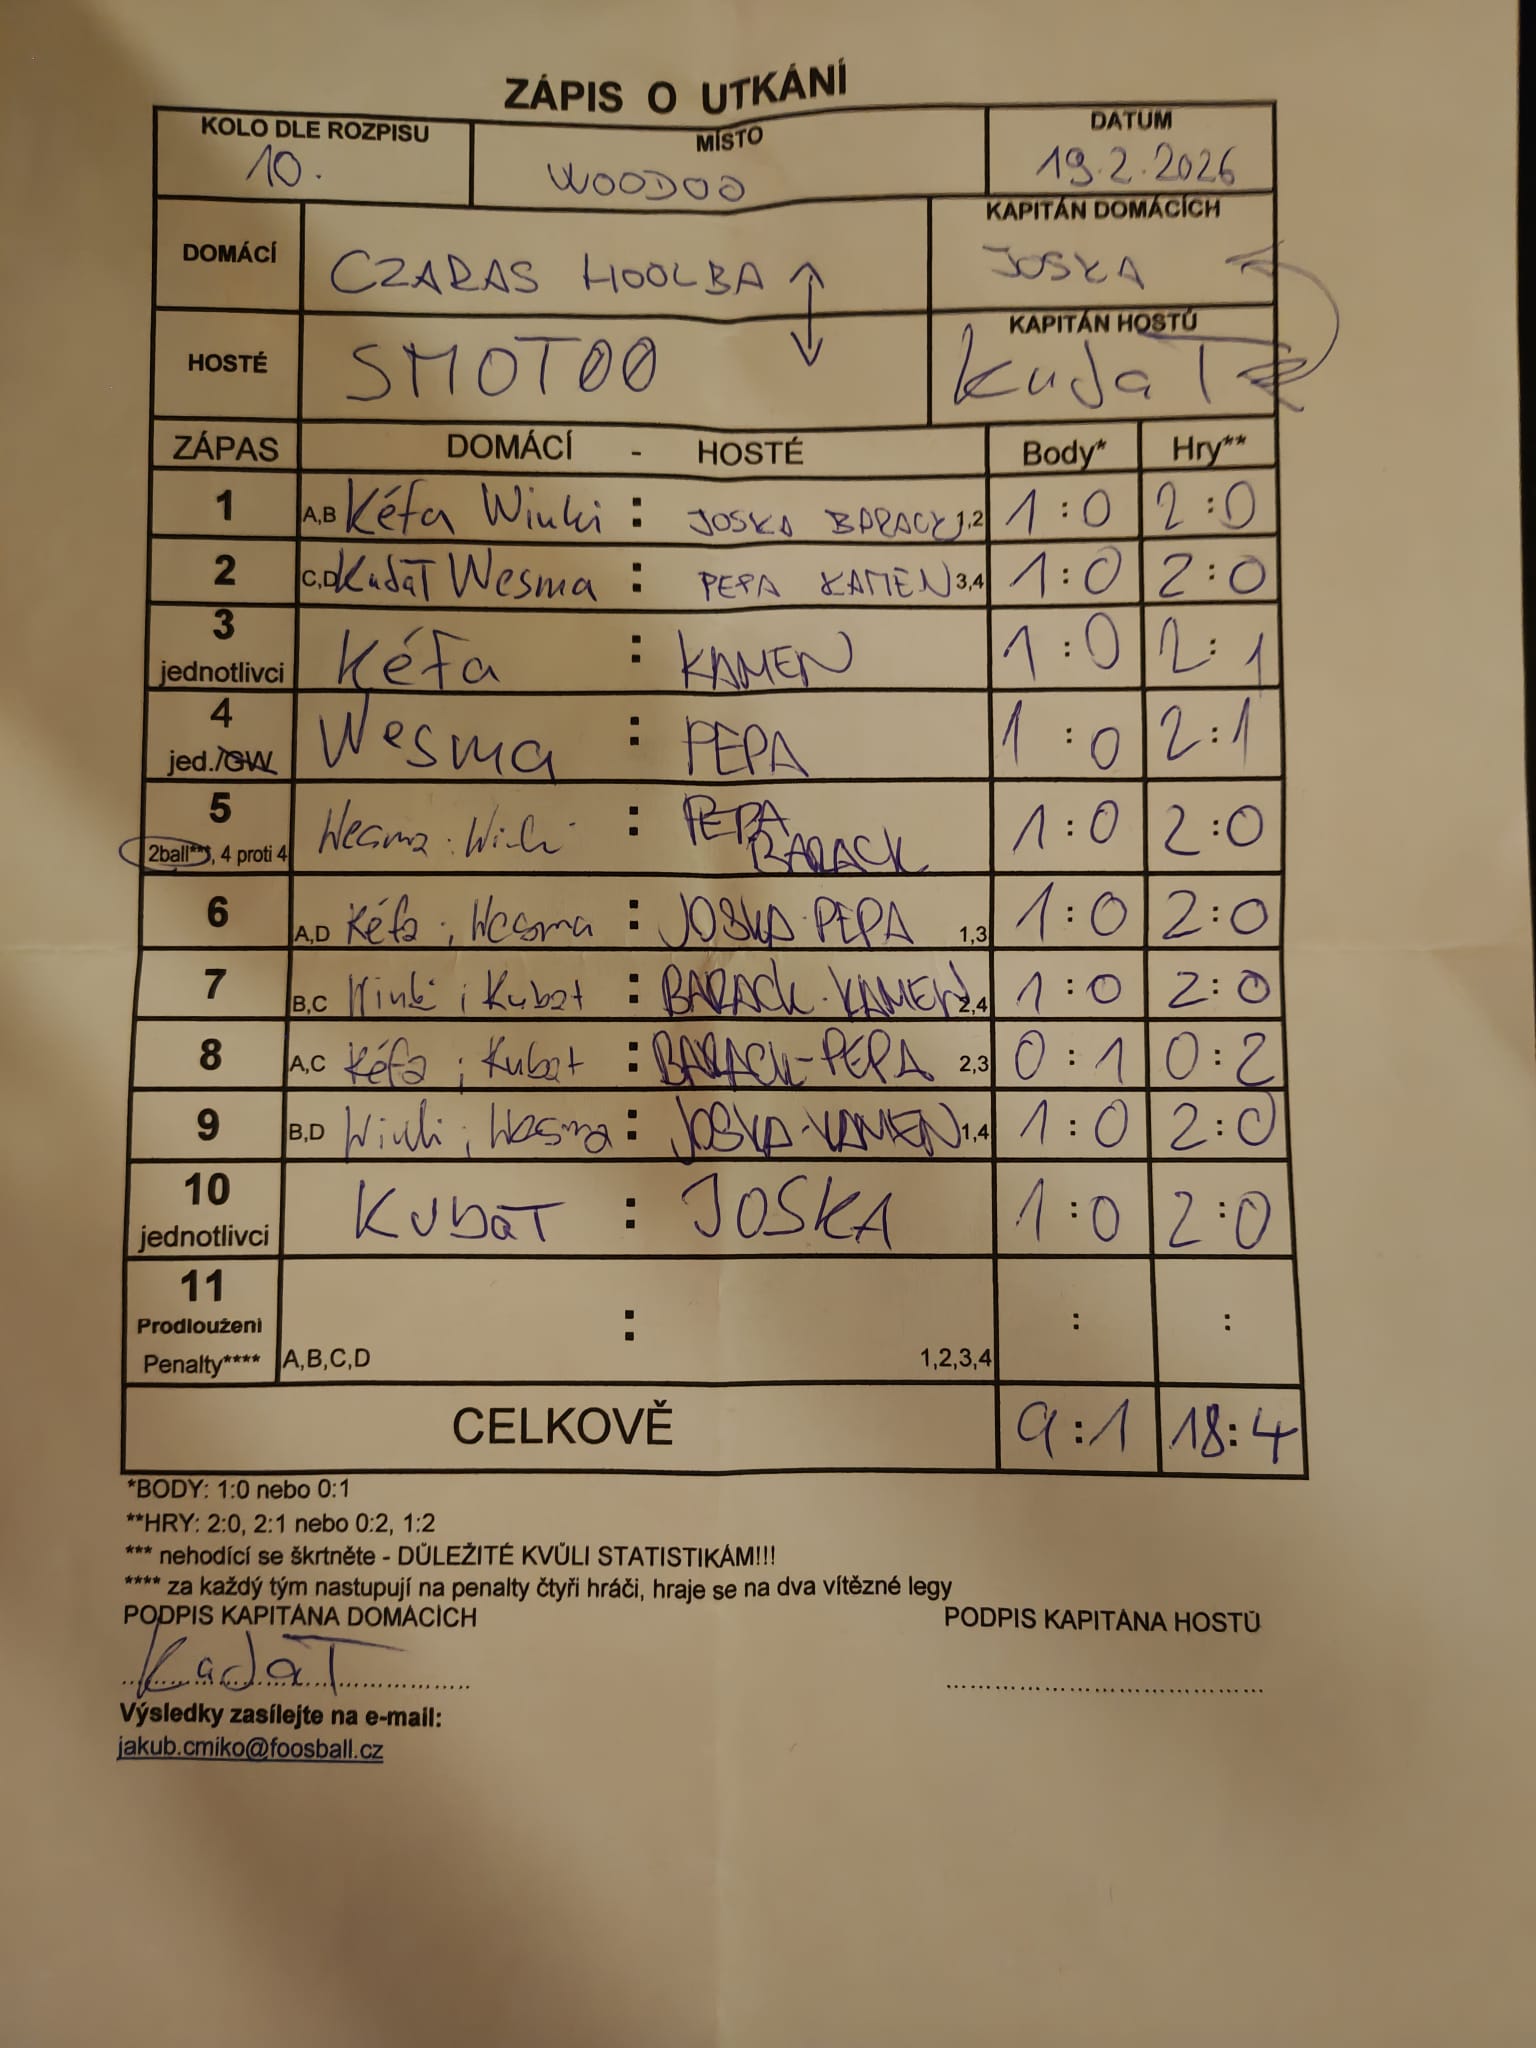 ZÁPIS O UTKÁNÍ
KOLO DLE ROZPISU MÍSTO DATUM
10. WOODOO 19.2.2026
DOMÁCÍ CZARAS HOOLBA KAPITÁN DOMÁCÍCH JOSKA
HOSTÉ SMOTOO KAPITÁN HOSTŮ KubaT
ZÁPAS DOMÁCÍ - HOSTÉ Body* Hry**
1 A,B Kéfa Winki : JOSKA BARACK 1,2 1:0 2:0
2 C,D Kubat Wesma : PEPA KAMEN 3,4 1:0 2:0
3 jednotlivci Kéfa : KAMEN 1:0 2:1
4 jed./GW Wesma : PEPA 1:0 2:1
5 2ball***, 4 proti 4 Wesma ; Winki : PEPA BARACK 1:0 2:0
6 A,D Kéfa ; Wesma : JOSKA-PEPA 1,3 1:0 2:0
7 B,C Winki ; Kubat : BARACK-KAMEN 2,4 1:0 2:0
8 A,C Kéfa ; Kubat : BARACK-PEPA 2,3 0:1 0:2
9 B,D Winki ; Wesma : JOSKA-KAMEN 1,4 1:0 2:0
10 jednotlivci KubaT : JOSKA 1:0 2:0
11 Prodloužení Penalty**** A,B,C,D : 1,2,3,4 : :
CELKOVĚ 9:1 18:4
*BODY: 1:0 nebo 0:1
**HRY: 2:0, 2:1 nebo 0:2, 1:2
*** nehodící se škrtněte - DŮLEŽITÉ KVŮLI STATISTIKÁM!!!
**** za každý tým nastupují na penalty čtyři hráči, hraje se na dva vítězné legy
PODPIS KAPITÁNA DOMÁCÍCH PODPIS KAPITÁNA HOSTŮ
KubaT
Výsledky zasílejte na e-mail:
jakub.cmiko@foosball.cz